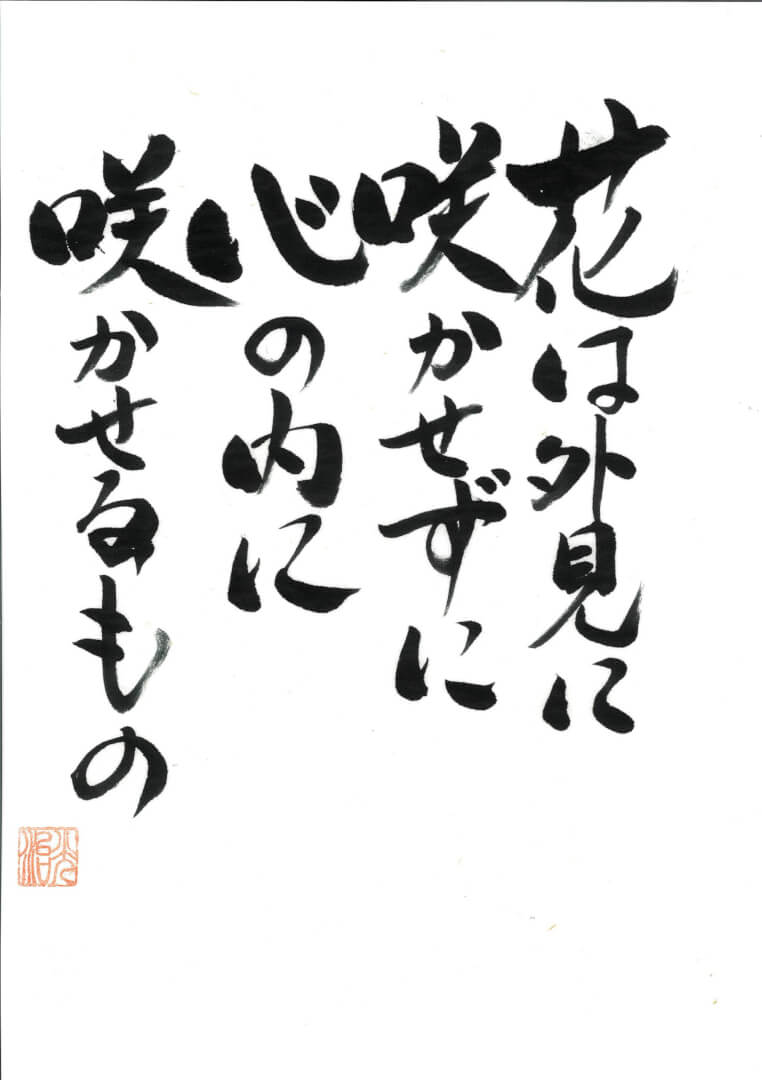 花は外見に
咲かせずに
心の内に
咲かせるもの